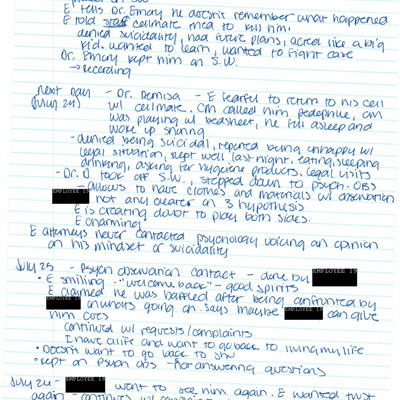 E tells Dr. Emory he doesn't remember what happened
E told staff cellmate tried to kill him.
denied suicidality, had future plans, acted like a big
kid. wanted to learn, wanted to fight case
Dr. Emory kept him on S.W.
→ recording
next Day - Dr. Demisa - E fearful to return to his cell
(July 24) w/ cellmate. CM called him pedophile, CM
was playing w/ bedsheet, he fell asleep and
woke up snoring
- denied being suicidal, reported being unhappy w/
legal situation, slept well last night. eating, sleeping
drinking, asking for hygiene products. legal visits
- Dr. D took off S.W., stepped down to psych. OBS
- allows to have clothes and materials w/ observation
EMPLOYEE 19 not any clearer on 3 hypothesis
E is creating doubt to play both sides.
E charming
E attorneys never contacted psychology voicing an opinion
on his mindset or suicidality
July 25 - Psych observation contact - done by EMPLOYEE 19
• E smiling "welcome back" - good spirits
E claimed he was baffled after being confronted by
rumors going on. says maybe EMPLOYEE 19 can give
him cues
continued w/ requests/complaints
I have a life and want to go back to living my life
• Doesn't want to go back to SHU
• kept on psych obs - not answering questions
July 26 - EMPLOYEE 19 went to see him again. E wanted trust
again - continues w/